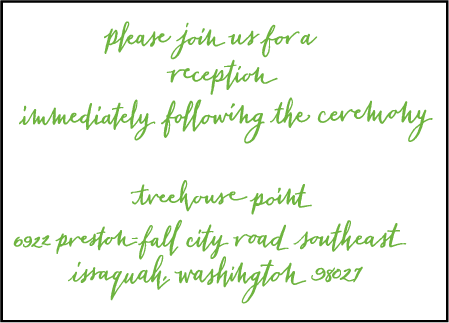 please join us for a
reception
immediately following the ceremony
treehouse point
6922 preston-fall city road southeast
issaquah, washington 98027